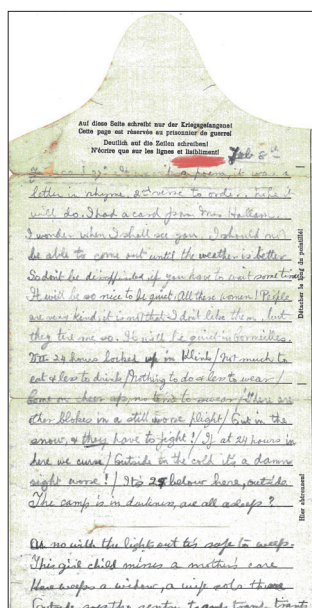 Auf diese Seite schreibt nur der Kriegsgefangene!
Cette page est réservée au prisonnier de guerre!
Deutlich auf die Zeilen schreiben!
N'écrire que sur les lignes et lisiblement!
Feb 8th
It a poem, it was a
letter in rhyme, & verse to order, hope it
will do. I had a card from Mrs Hallam.
I wonder when I shall see you. I should not
be able to come out until the weather is better
So don't be disappointed if you have to wait some time
It will be so nice to be quiet. All these women! People
are very kind, it is not that I don't like them, but
they tire me so. It will be quiet in
24 hours locked up in Klink/Not much to
eat & less to drink/Nothing to do & less to wear/
Come on cheer up, no to swear/There are
other blokes in a still worse plight/Out in the
snow, & they have to fight!/If at 24 hours in
here we curse/Outside in the cold it's a damn
sight worse!/It's 25 below here, outside
The camp is in darkness, are all asleep?
Ah no with the lights out tis safe to weep.
This girl child misses a mother's care
Here weeps a widow, a wife sobs there
Outside goes the sentry tramp tramp
Détacher le long du pointillé!
Hier abtrennen!